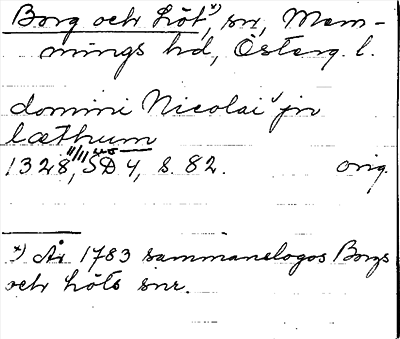 Borg och Löt, *) snr, Mem-
mings hd, Österg. l.
domini Nicolai jn
læthum
1328 11/11, SD 4, s. 82. orig.
*) År 1783 sammanslogos Borgs
och Löts snr.